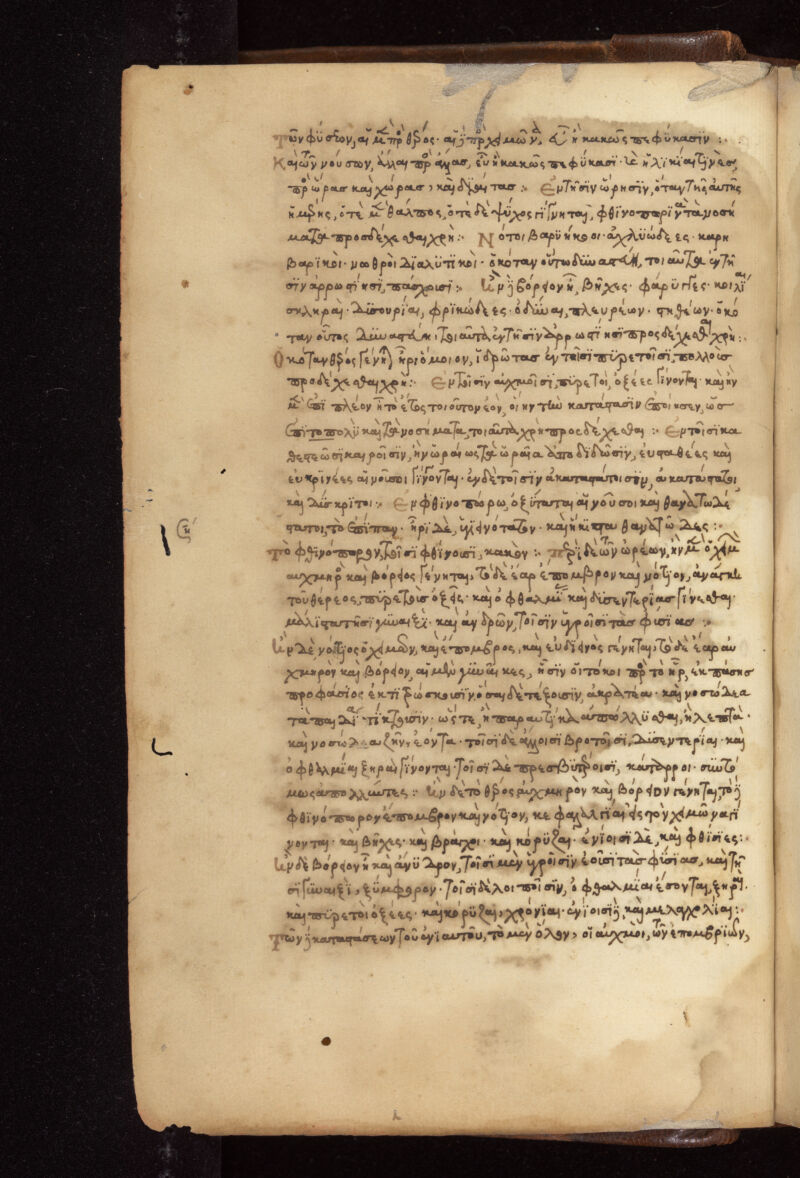 Τῶν φυσίων, αἱ μὲν πρὸς θέρος· αἱ δὲ πρὸς χειμῶνα, εὖ ἢ κακῶς πεφύκασϊν :
Καὶ τῶν νούσων, ἄλλαι πρὸς ἄλλας, εὖ ἢ κακῶς πεφύκασι· καὶ ἡλικίαι τινὲς,
πρὸς ὥρας καὶ χώρας, καὶ διαίτας : Ἐν τῆσϊν ὥρησϊν, ὅταν τῆς αὐτῆς
ἡμέρης, ὁτὲ μὲν θάλπος, ὁτὲ δὲ ψύχος γίνηται, φθινοπωρινὰ τὰ νοσή
ματα προσδέχεσθαι χρὴ : Νότοι βαρυήκοοι· ἀχλυώδεες· καρη
βαρικοὶ· νωθροὶ διαλυτικοὶ· ὁκόταν οὗτος δυναστεύη, τοιαῦτα ἐν τῆ
σιν ἀρρωστίησι, πάσχουσι : Ἢν δὲ βόρειον ἦ, βῆχες· φάρυγγες· κοιλίαι
σκληραὶ· δυσουρίαι, φρικώδεες· ὀδύναι, πλευρέων· στηθέων· ὁκό
ταν οὗτος δυναστεύη, τοιαῦτα, ἐν τῆσιν ἀρρωστίησι προσδέχεσθαι χρὴ :
Ὁκόταν θέρος γένηται ἦρι ὅμοιον, ἱδρῶτας ἐν τοῖσι πυρετοῖσι, πολλοὺς
προσδέχεσθαι χρὴ : Ἐν τοῖσιν αὐχμοῖσι, πυρετοὶ, ὀξέες γίνονται· καὶ ἢν
μὲν ἐπὶ πλέον ἦ τὸ ἔτος τοιοῦτον ἐὸν, οἵην τὴν κατάστασιν ἐποίησεν, ὡς
ἐπιτοπολὺ καὶ τὰ νοσήματα, τοιαῦτα χρὴ προσδέχεσθαι : Ἐν τοῖσι κα
θεστεῶσι καιροῖσιν, ἢν ὡραίως τὰ ὡραῖα ἀποδιδῶσιν, εὐσταθέες καὶ
εὐκρινέες αἱ νοῦσοι γίνονται· ἐν δὲ τοῖσιν ἀκαταστάτοισιν, ἀκατάστατοι
καὶ δύσκριτοι : Ἐν φθινοπώρω, ὀξύταται αἱ νοῦσοι καὶ θανατωδέ
σταται, τὸ ἐπίπαν· ἦρι δὲ, ὑγιεινότατον· καὶ ἥκιστα θανατῶδες :
Τὸ φθινόπωρον, τοῖσι φθίνουσι, κακὸν : Περὶ δὲ τῶν ὡρέων, ἢν μὲν ὁ χειμὼν
αὐχμηρὸς καὶ βόρειος γένηται, τὸ δὲ ἔαρ ἔπομβρον καὶ νότιον, ἀνάγκη
τοῦ θέρεος, πυρετοὺς ὀξεῖς· καὶ ὀφθαλμίας καὶ δυσεντερίας γίνεσθαι·
μάλιστα τῆσι γυναιξὶ· καὶ ἀνδρῶν, τοῖσιν ὑγροῖσι τὰς φύσιας :
Ἢν δὲ νότιος ὁ χειμὼν, καὶ ἔπομβρος, καὶ εὔδιεινὸς γένηται, τὸ δὲ ἔαρ αὐ
χμηρὸν καὶ βόρειον, αἱ μὲν γυναῖκες, ἧσιν οἱ τόκοι πρὸς τὸ ἦρ, ἐκ πάσης
προφάσιος ἐκτιτρώσκουσιν· ὅσαι δὲ τέξουσιν, ἀκρατέα· καὶ νοσώδεα
τὰ παιδία τίκτουσιν· ὥστε, ἢ παραυτίκα ἀπόλλυσθαι, ἢ λεπτὰ·
καὶ νοσώδεα ζῆν, ἐόντα· τοῖσι δὲ ἄλλοισι βροτοῖσι, δυσεντερίαι· καὶ
ὀφθαλμίαι ξηραὶ γίνονται· τοῖσι δὲ πρεσβυτέροισι, κατάρροι· συντό
μως ἀπολλύντες : Ἢν δὲ τὸ θέρος αὐχμηρὸν καὶ βόρειον γένηται, τὸ δὲ
φθινόπωρον ἔπομβρον καὶ νότιον, κεφαλαλγίαι ἐς τὸν χειμῶνα γί
νονται· καὶ βῆχες· καὶ βράγχοι· καὶ κόρυζαι· ἐνίοισι δὲ, καὶ φθίσιες :
Ἢν δὲ βόρειον ἦ καὶ ἄνυδρον, τοῖσι μὲν ὑγροῖσιν ἐοῦσι τὰς φύσιας, καὶ τῆ
σι γυναιξὶ, ξύμφορον· τοῖσι δὲ λοιποῖσιν, ὀφθαλμίαι ἔσονται, ξηραὶ·
καὶ πυρετοὶ ὀξέες· καὶ κόρυζαι, χρόνιαι· ἐνίοισι δὲ, καὶ μελαγχολίαι :
Τῶν δὲ καταστάσεων τοῦ ἐνιαυτοῦ, τὸ μὲν ὅλον, οἱ αὐχμοὶ, τῶν ἐπομβριῶν,